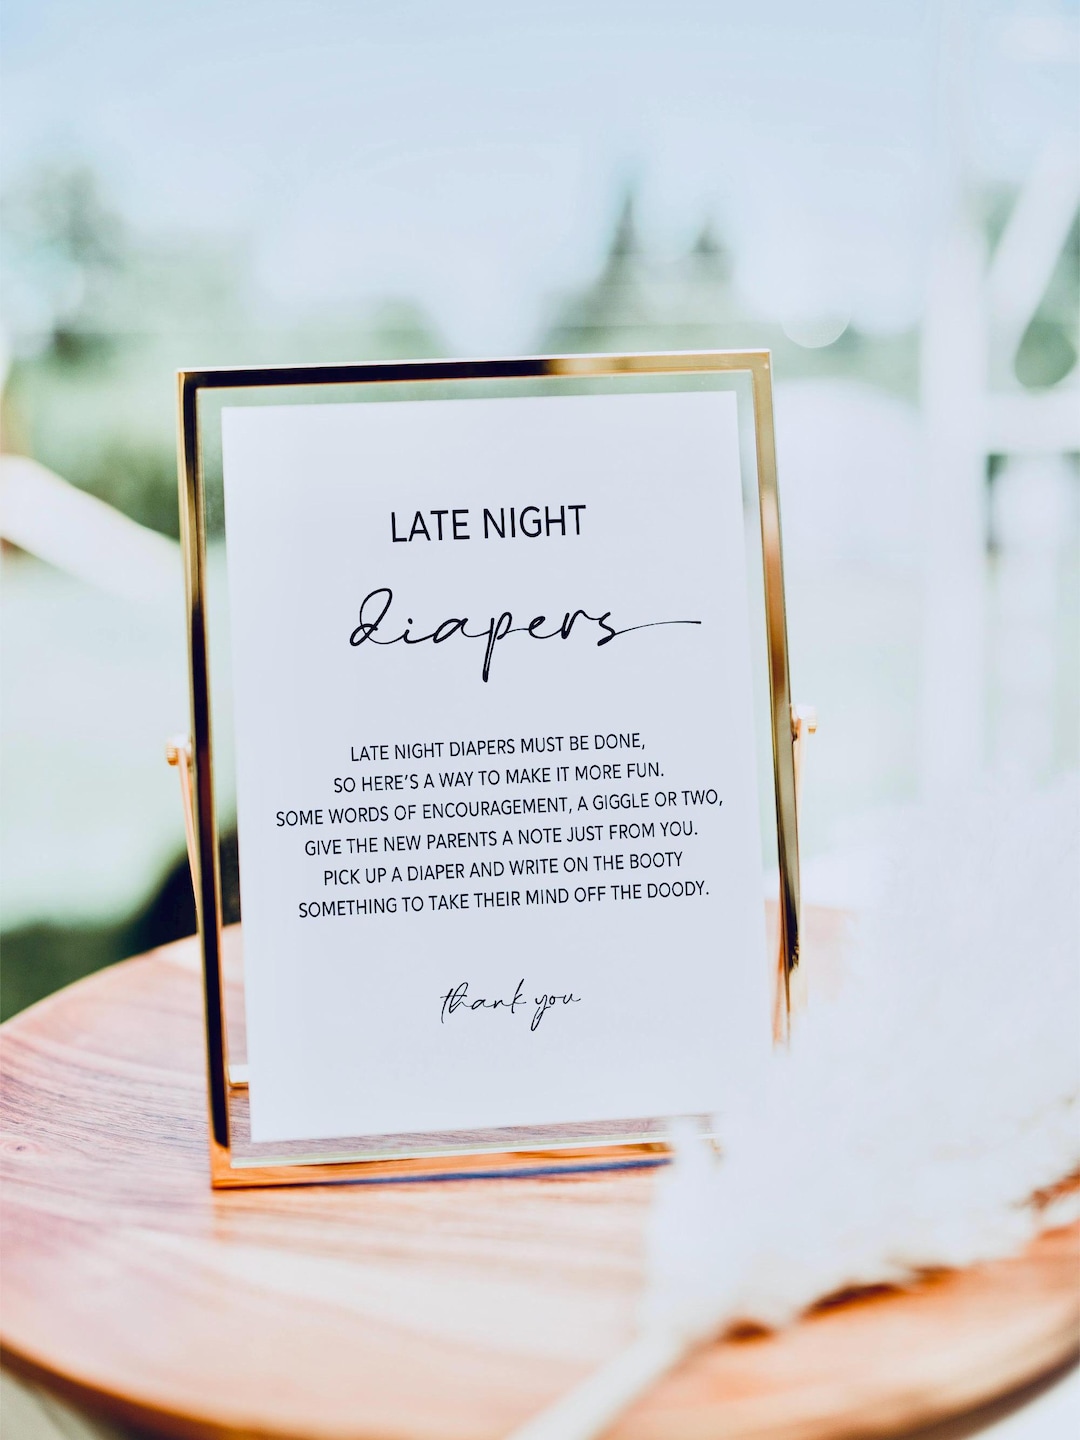 LATE NIGHT
diapers
LATE NIGHT DIAPERS MUST BE DONE,
SO HERE'S A WAY TO MAKE IT MORE FUN.
SOME WORDS OF ENCOURAGEMENT, A GIGGLE OR TWO,
GIVE THE NEW PARENTS A NOTE JUST FROM YOU.
PICK UP A DIAPER AND WRITE ON THE BOOTY
SOMETHING TO TAKE THEIR MIND OFF THE DOODY.
thank you